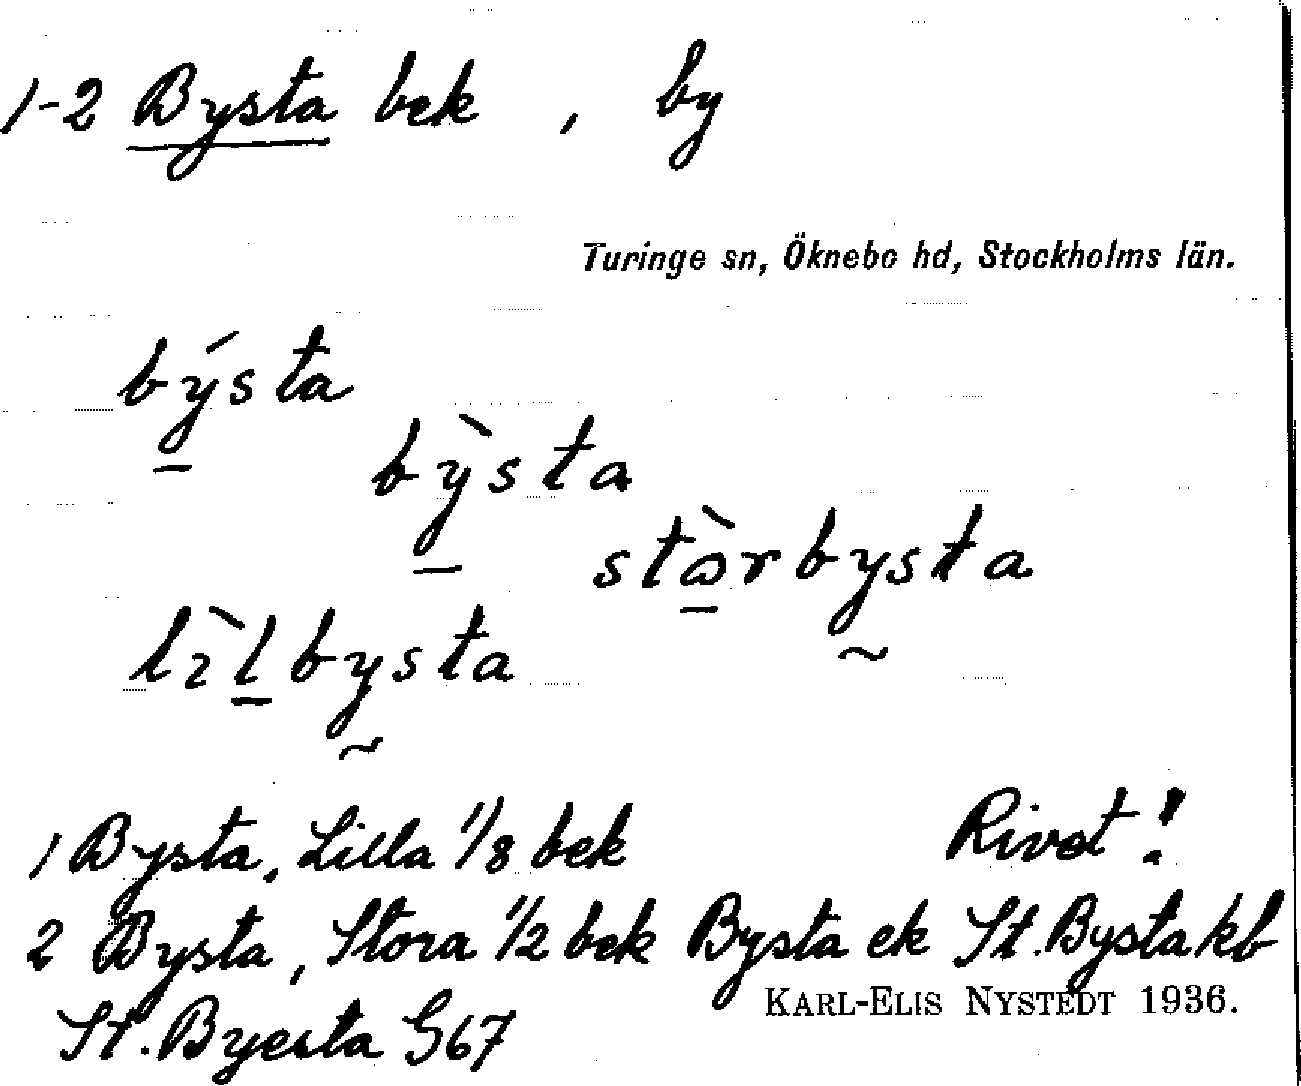 1-2 Bysta bek, by
Turinge sn, Öknebo hd, Stockholms län.
býsta
bỳsta
stὼrbysta
lɪ̀lbysta
1 Bysta, Lilla 1/8 bek Rivet!
2 Bysta, Stora 1/2 bek Bysta ek St. Bysta kb
KARL-ELIS NYSTEDT 1936.
St. Byesta G67